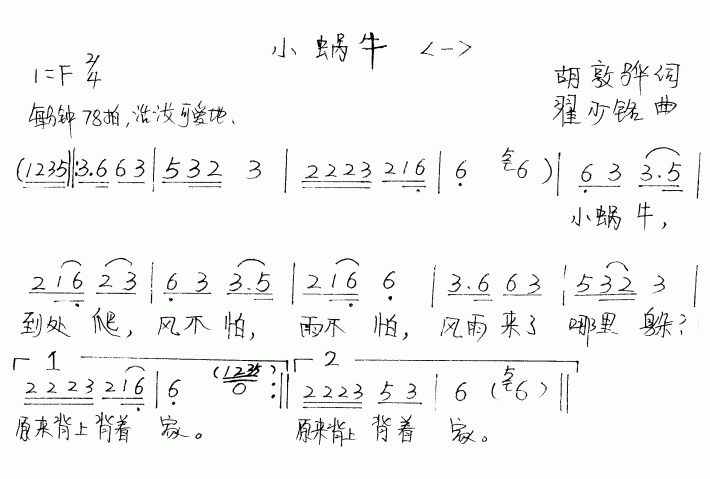 小蜗牛 <一>
1=F 2/4
胡敦骅词
每分钟78拍,活泼可爱地、
翟少铭曲
(1235‖:3.6 63|532 3|2223 216|6 5/6)|63 3.5|
小蜗牛,
216 23|63 3.5|216 6|3.6 63|532 3|
到处爬,风不怕,雨不怕,风雨来了哪里躲?
1 2
2223 216|6 (1235) 0:‖2223 53|6 (5/6)‖
原来背上背着家。 原来背上背着家。